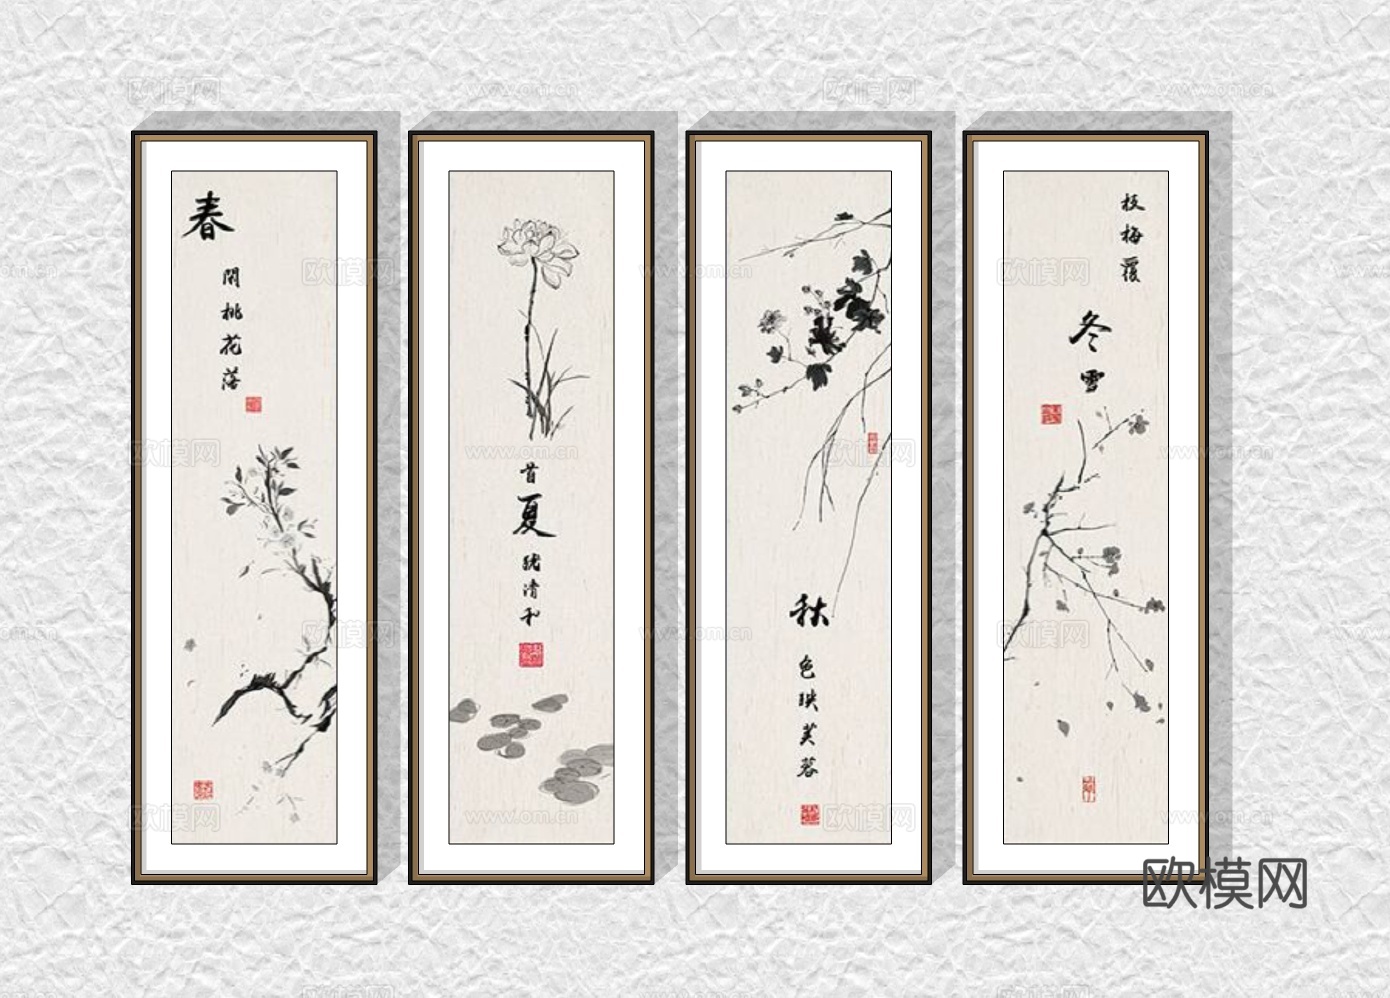 春
閑桃花落
首夏猶清和
秋
色映芙蓉
枝梅覆
冬雪
欧模网
www.om.cn